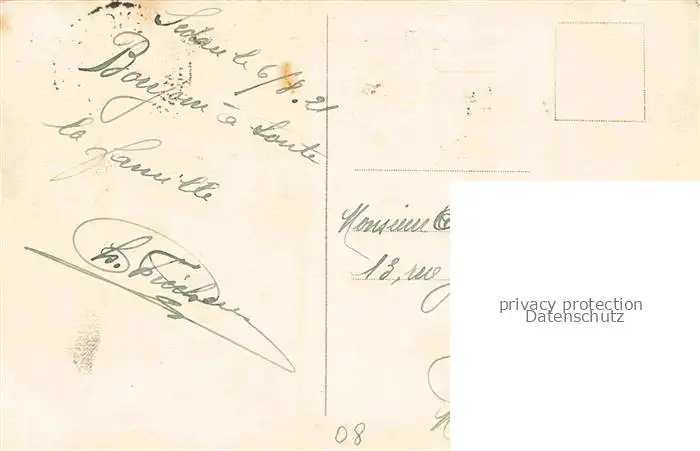 Sedan le 6/8.21
Bonjour à toute
la famille
Monsieur
13, rue
privacy protection
Datenschutz
08